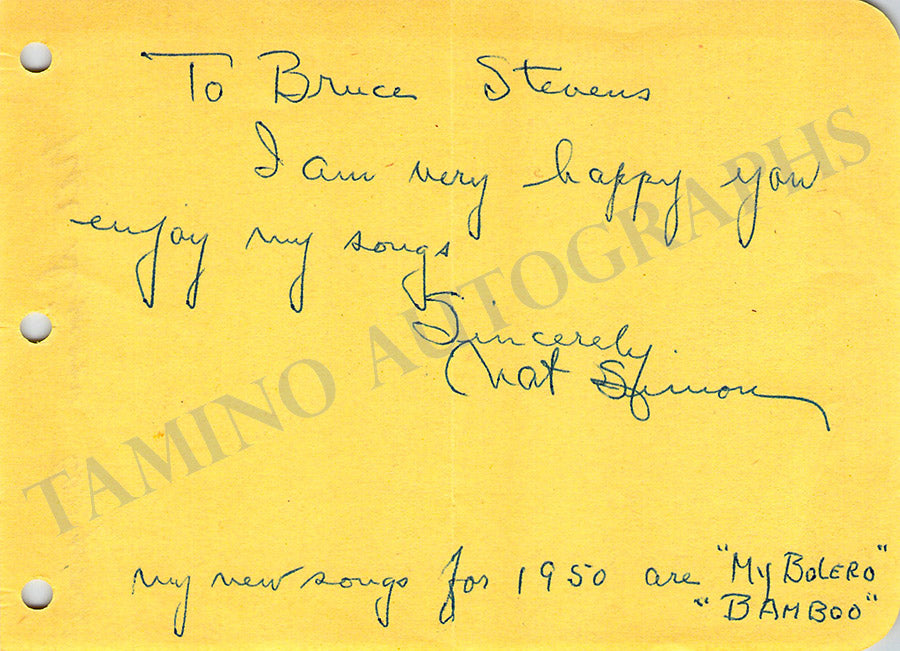 To Bruce Stevens
I am very happy you
enjoy my songs
Sincerely
Nat Simon
my new songs for 1950 are "My Bolero"
"BAMBOO"
TAMINO AUTOGRAPHS